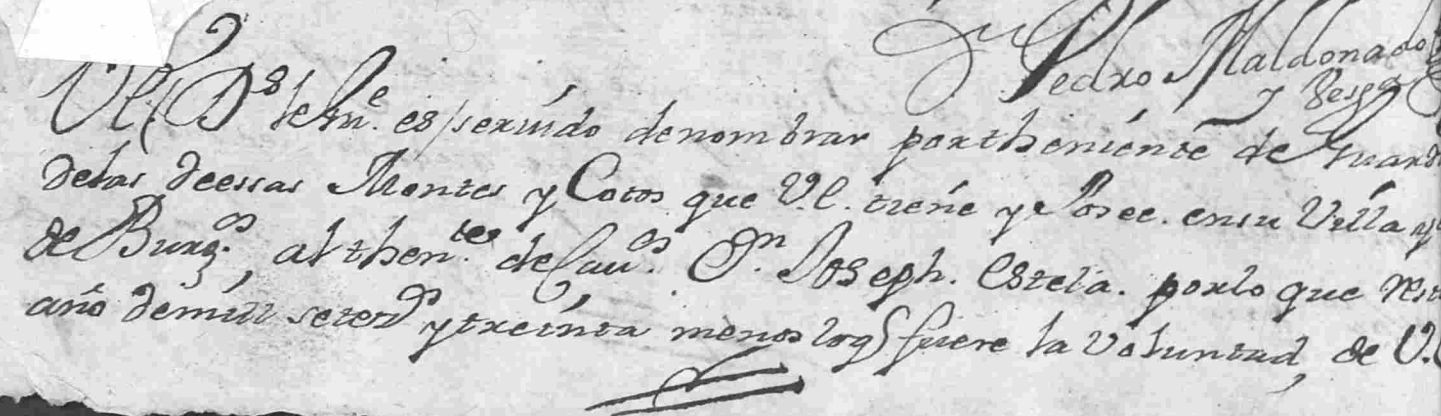 Pedro Maldonado
y
V.E. Ds le gue. es servido de nombrar por theniente de Guard
de las deessas Montes y Cotos que V.E. tiene y Posee. en su Villa y
de Burgs. al thente. de Cavos. Dn. Joseph. Estela. por lo que rest
año de mill setezs y treinta menos loq fuere la Voluntad, de V.